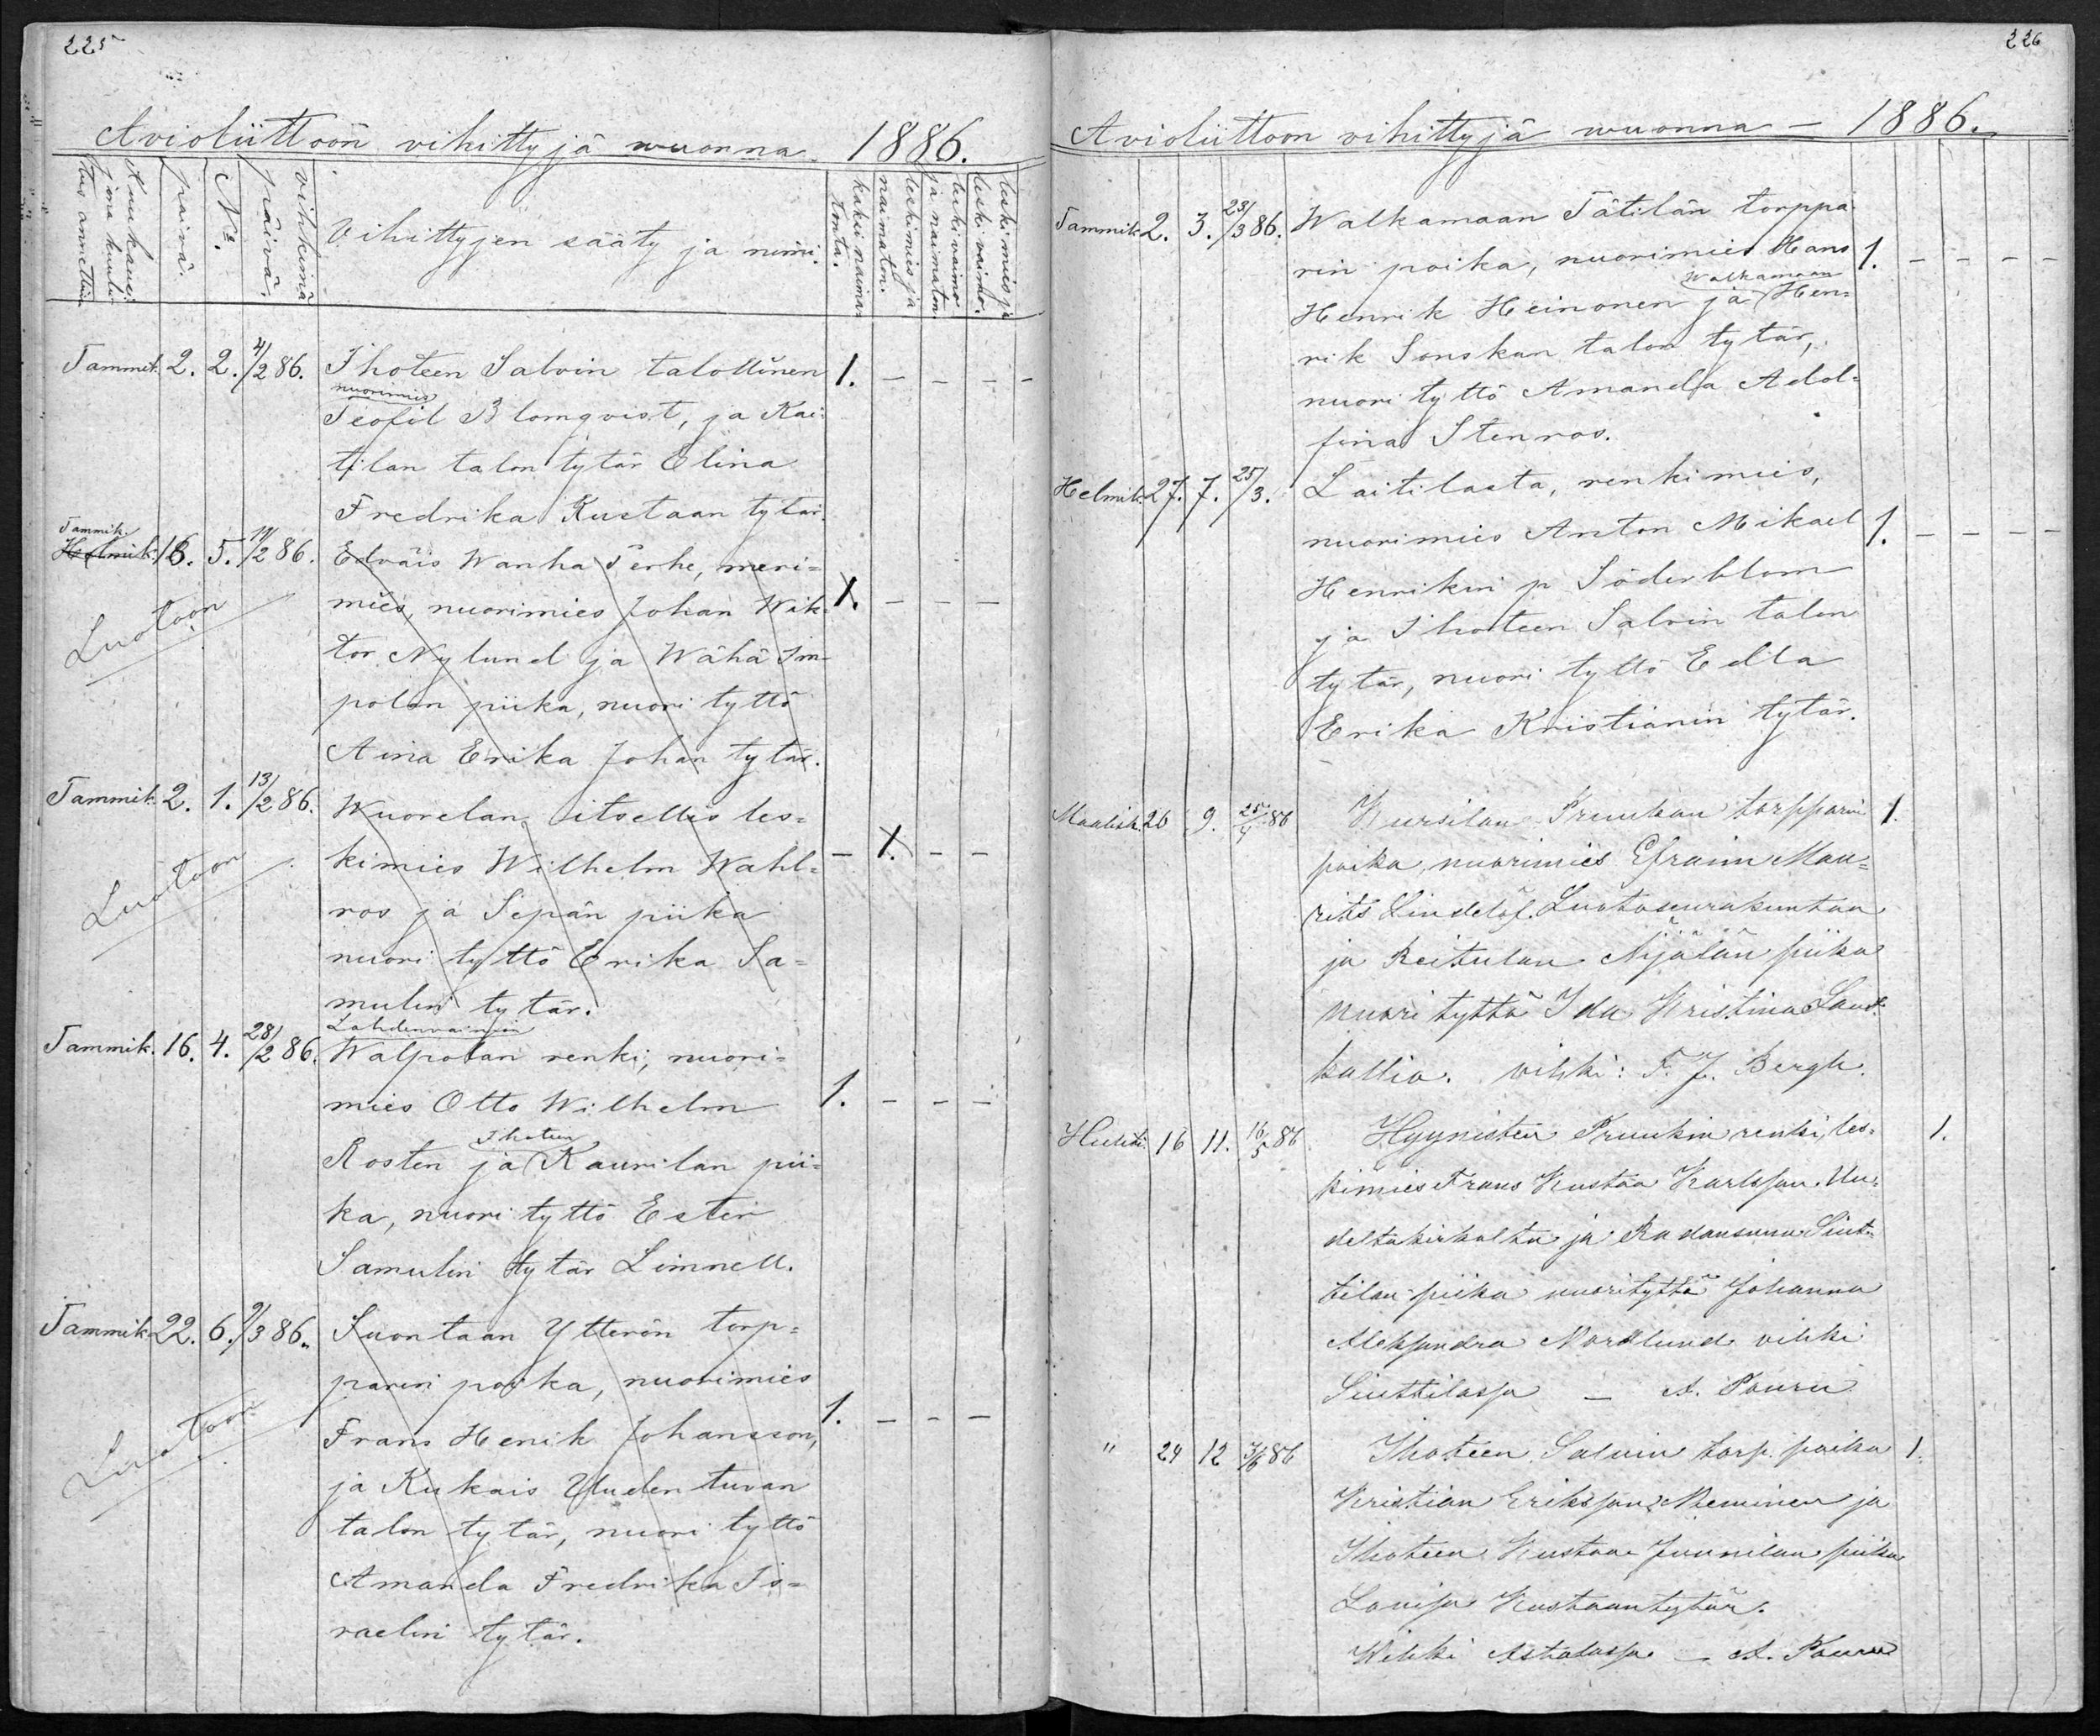 225
Avioliittoon vihittyjä wuonna 1886.
Kuukausi jona kuulutus annettiin
päivä.
No.
vihkimä päivä.
Vihittyjen sääty ja nimi.
kaksi naimatonta.
leskimies ja naimaton.
leskivaimo ja naimaton.
leskimies ja leskivaimo.
Tammik. 2. 2. 4/2 86. Ihoteen Salvin talollinen 1. – – – –
nuorimies
Teofil Blomqvist, ja Kai-
tilan talon tytär Elina
Fredrika Kustaan tytär.
Tammik.
Helmik. 16. 5. 11/2 86. Edväis Wanha Perhe, meri=
mies, nuorimies Johan Wik- 1. – – –
Luotoon
tor Nylund ja Wähä Im-
polan piika, nuori tyttö
Aina Erika Johan tytär.
Tammik. 2. 1. 13/2 86. Wuorelan itsellis les=
kimies Wilhelm Wahl= – 1. – –
Luotoon
ros ja Sepän piika
nuori tyttö Erika Sa=
mulin tytär.
Lahdenvainion
Tammik. 16. 4. 28/2 86. Walpolan renki, nuori=
mies Otto Wilhelm 1. – – –
Ihoteen
Rosten ja Kaurilan pii=
ka, nuori tyttö Ester
Samulin tytär Limnell.
Tammik. 22. 6. 9/3 86. Suontaan Ytterön torp=
parin poika, nuorimies
Luotoon
Frans Henik Johansson, 1. – – –
ja Kukais Uuden tuvan
talon tytär, nuori tyttö
Amanda Fredrika Is=
raelin tytär.
226
Avioliittoon vihittyjä wuonna – 1886.
Tammik. 2. 3. 23/3 86. Walkamaan Tätilän torppa-
rin poika, nuorimies Hans 1. – – – –
Walkamaan
Henrik Heinonen ja Hen=
rik Sonskan talon tytär,
nuori tyttö Amanda Adol=
fina Stenroos.
Helmik. 27. 7. 25/3. Laitilasta, renkimies,
nuorimies Anton Mikael 1. – – – –
Henrikin p Söderblom
ja Ihoteen Salvin talon
tytär, nuori tyttö Edla
Erika Kristianin tytär.
Maalisk. 26 9. 25/4 86 Kursilan Pruukan torpparin 1.
poika, nuorimies Efraim Mau=
rits Lindelöf. Luotoseurakuntaa
ja Reitulan Äijälän piika
nuori tyttö Ida Kristina Laut-
kallio. vihki: F. J. Bergh.
Huhti. 16 11. 16/5 86 Hyynisten Pruukin renki, les= 1.
kimies Frans Kustaa Karlsson Uu=
deltakirkolta ja Radansuun Siut=
tilan piika nuorityttö Johanna
Aleksandra Nordlund vihki
Siuttilassa – A. Pauru
" 24 12 3/6 86 Ihoteen Salvin torp. poika 1.
Kristian Eriksson Neminen ja
Ihoteen Kustaa Juunilan piika
Lovisa Kustaantytär.
Wihki Astalassa – A. Pauru